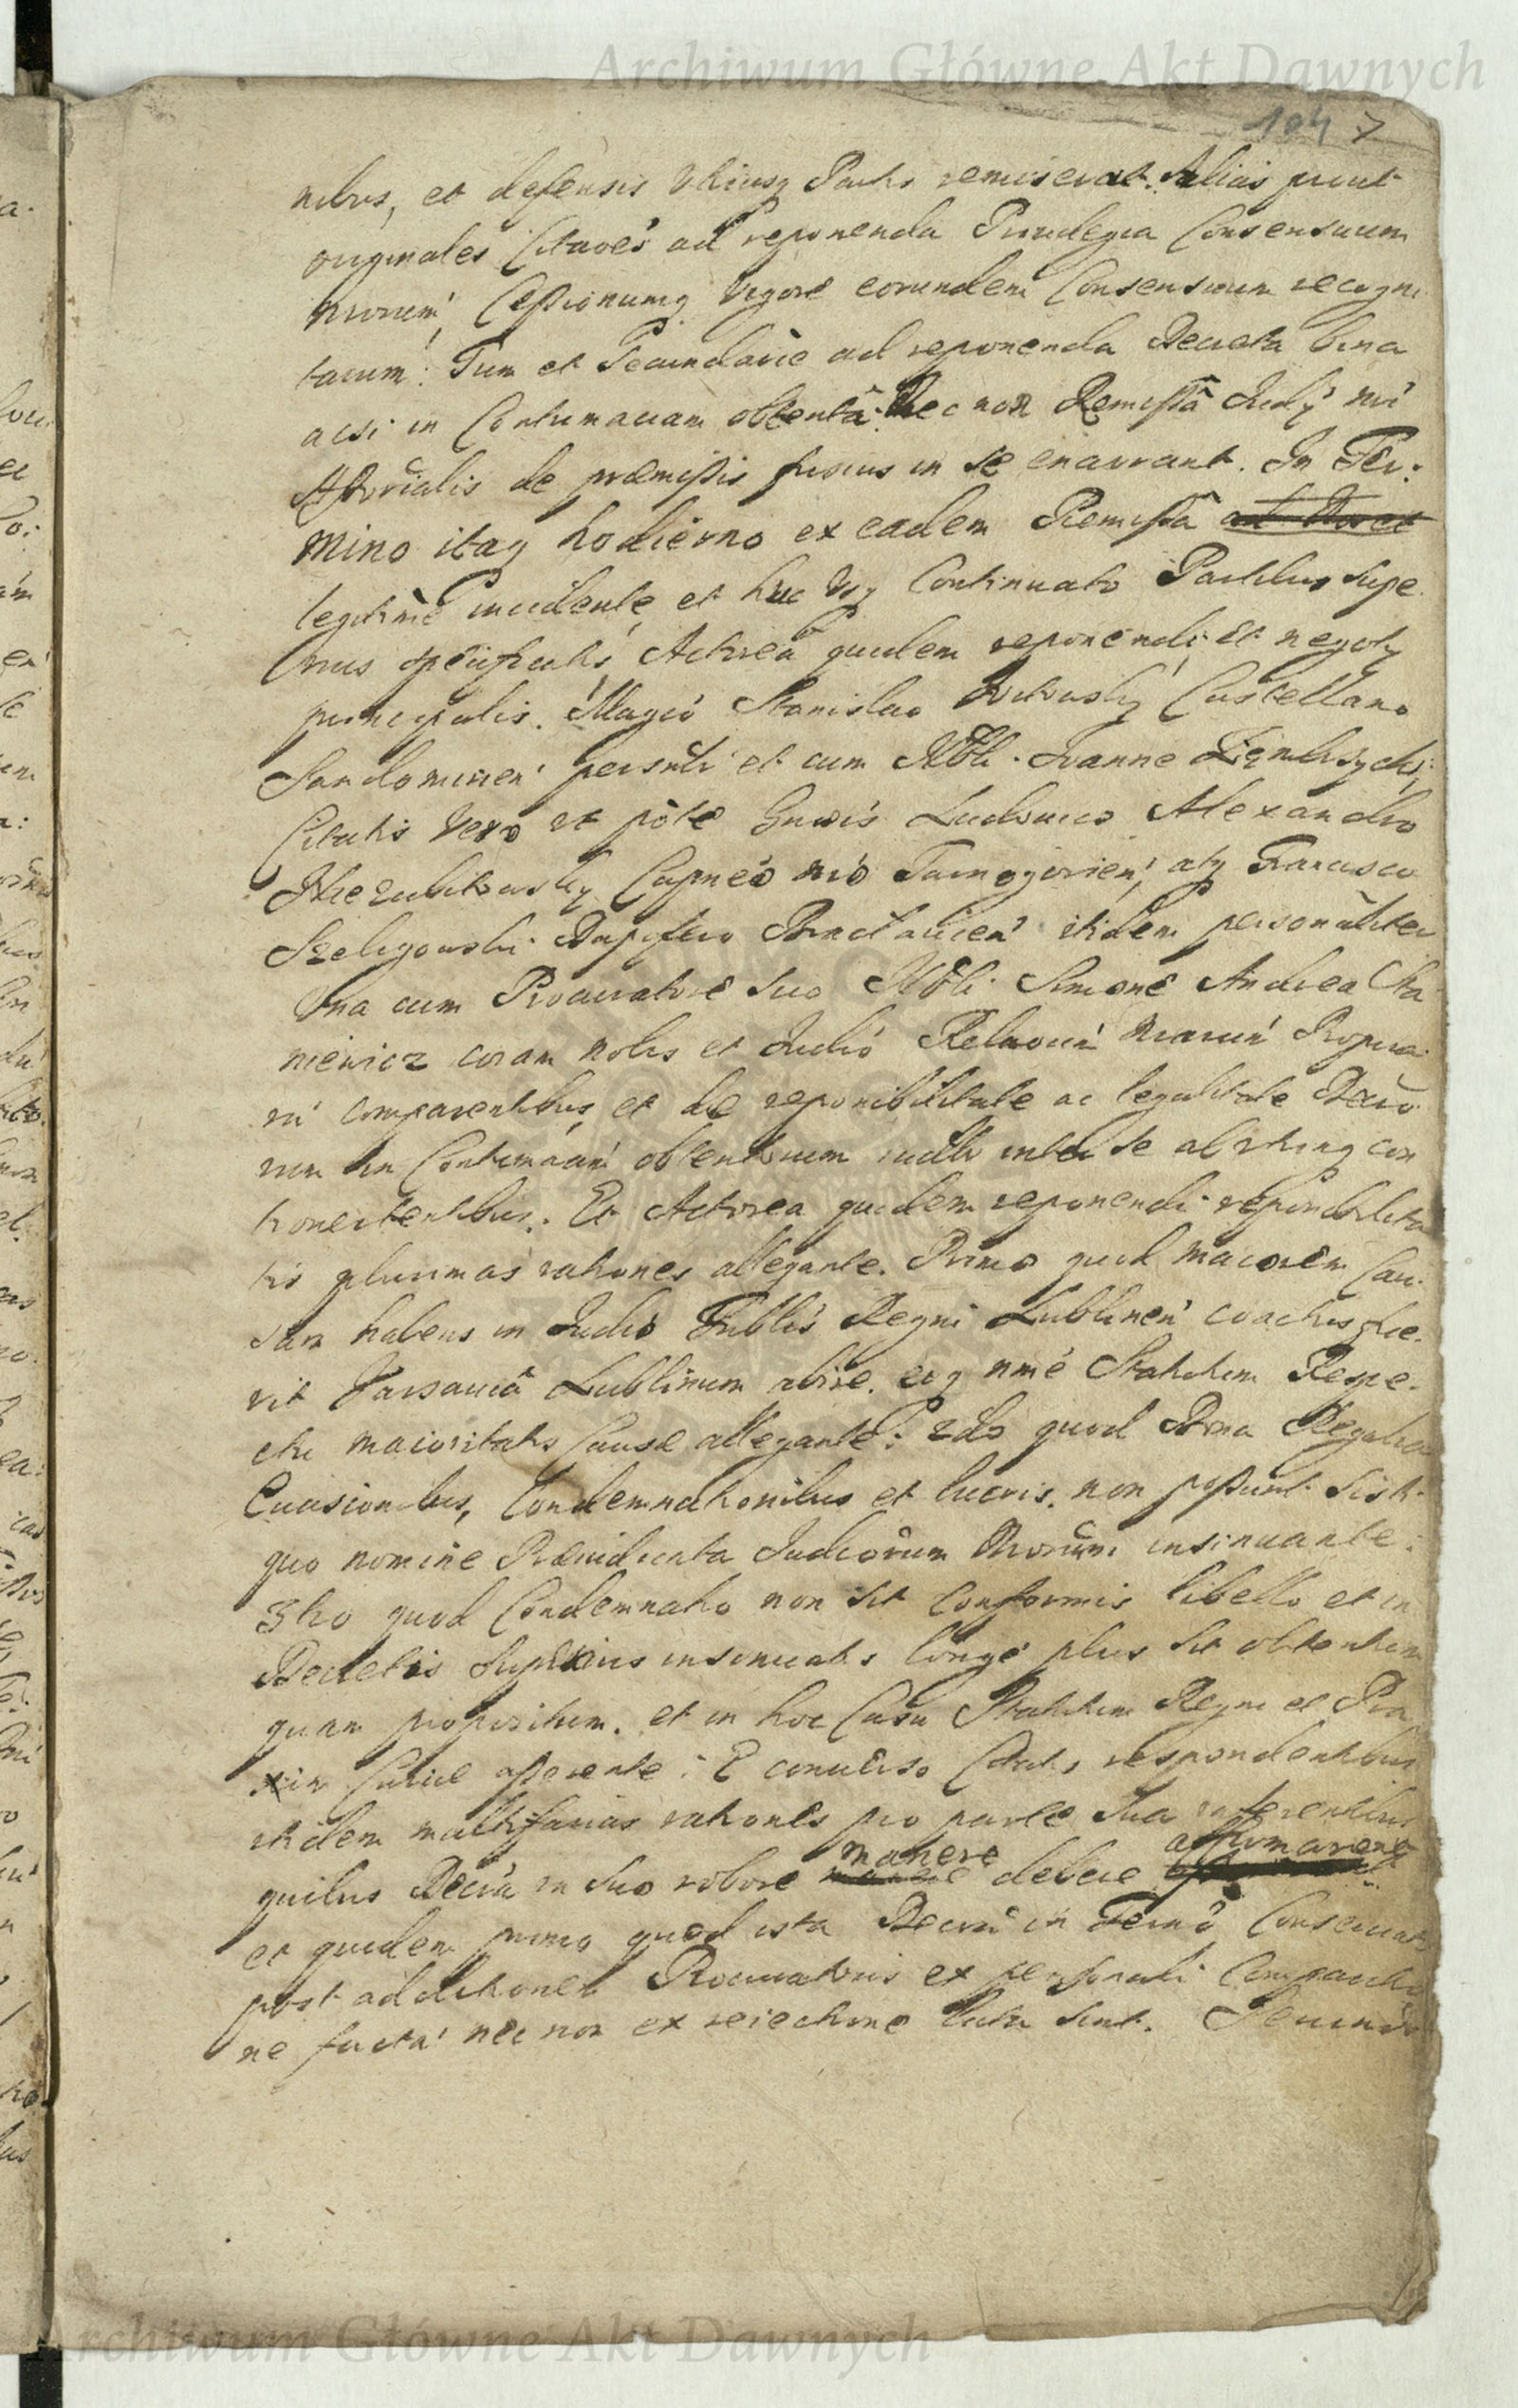 Archiwum Główne Akt Dawnych
104 7
nibus, et defensis Utriusq Partis remiserat. Alias prout
originales Citaōēs ad reponenda Privilegia Consensuum
nrorum, Cessionumq vigore eorundem Consensuum recogni
tarum. Tum et Secundarie ad reponenda Decreta bina
acsi in Contumaciam obtenta. Nec non Remissa Judij nri
Assorialis de praemissis fusius in se enarrant. In Ter:
mino itaq hodierno ex eadem Remissa
legitime incidente, et huc usq Continuato Partibus supe
rius specificatis, Actorea quidem reponendi, Et negotij
principalis. Magco Stanislao Castellano
Sandomirien personali et cum Nobli Joanne
Citatis vero ut pote Gnosis Ludovico Alexandro
Capneo nro atq Francisco
Szeligowski Dapifero Braclavien itidem personaliter
Una cum Procuratore suo Nobli Simone Andrea Cha
niewicz coram nobis et Judio Relaonu nrarum Propria
ru comparentibus, et de reponibilitate ac legalitate Decro
rum in Contumacium obtentorum inter se ab utrinq con
trovertentibus. Et Actorea quidem reponendi reponibilita
tis plurimas rationes allegante. Primo quod maiorem Cau
sam habens in Judio Tribblis Regni Lublinen coactus fue
rit Varsavia Lublinum abire. eoq nme Statutum Respe
ctu maioritatis Causae allegante: 2do quod Bona Regalia
Evasionibus, Condemnationibus et lucris non possunt sisti
quo nomine Praeiudicata Judiciorum nrorum insinuante:
3tio quod Condemnatio non sit Conformis libello et in
Decretis superius insinuatis longe plus sit obtentum
quam propositum. et in hoc Casu Statutum Regni et Pra
xin Curiae asserente: E converso Citatis respondentibus
itidem multifarias rationes pro parte sua referentibus
manere affirmarent
quibus Decra in suo robore debere
et quidem primo quod ista Decra in Termo Conservato
post additionem Procuratoris ex personali Comparitio
ne facta nec non ex reiectione lata sint. Secundo
Archiwum Główne Akt Dawnych